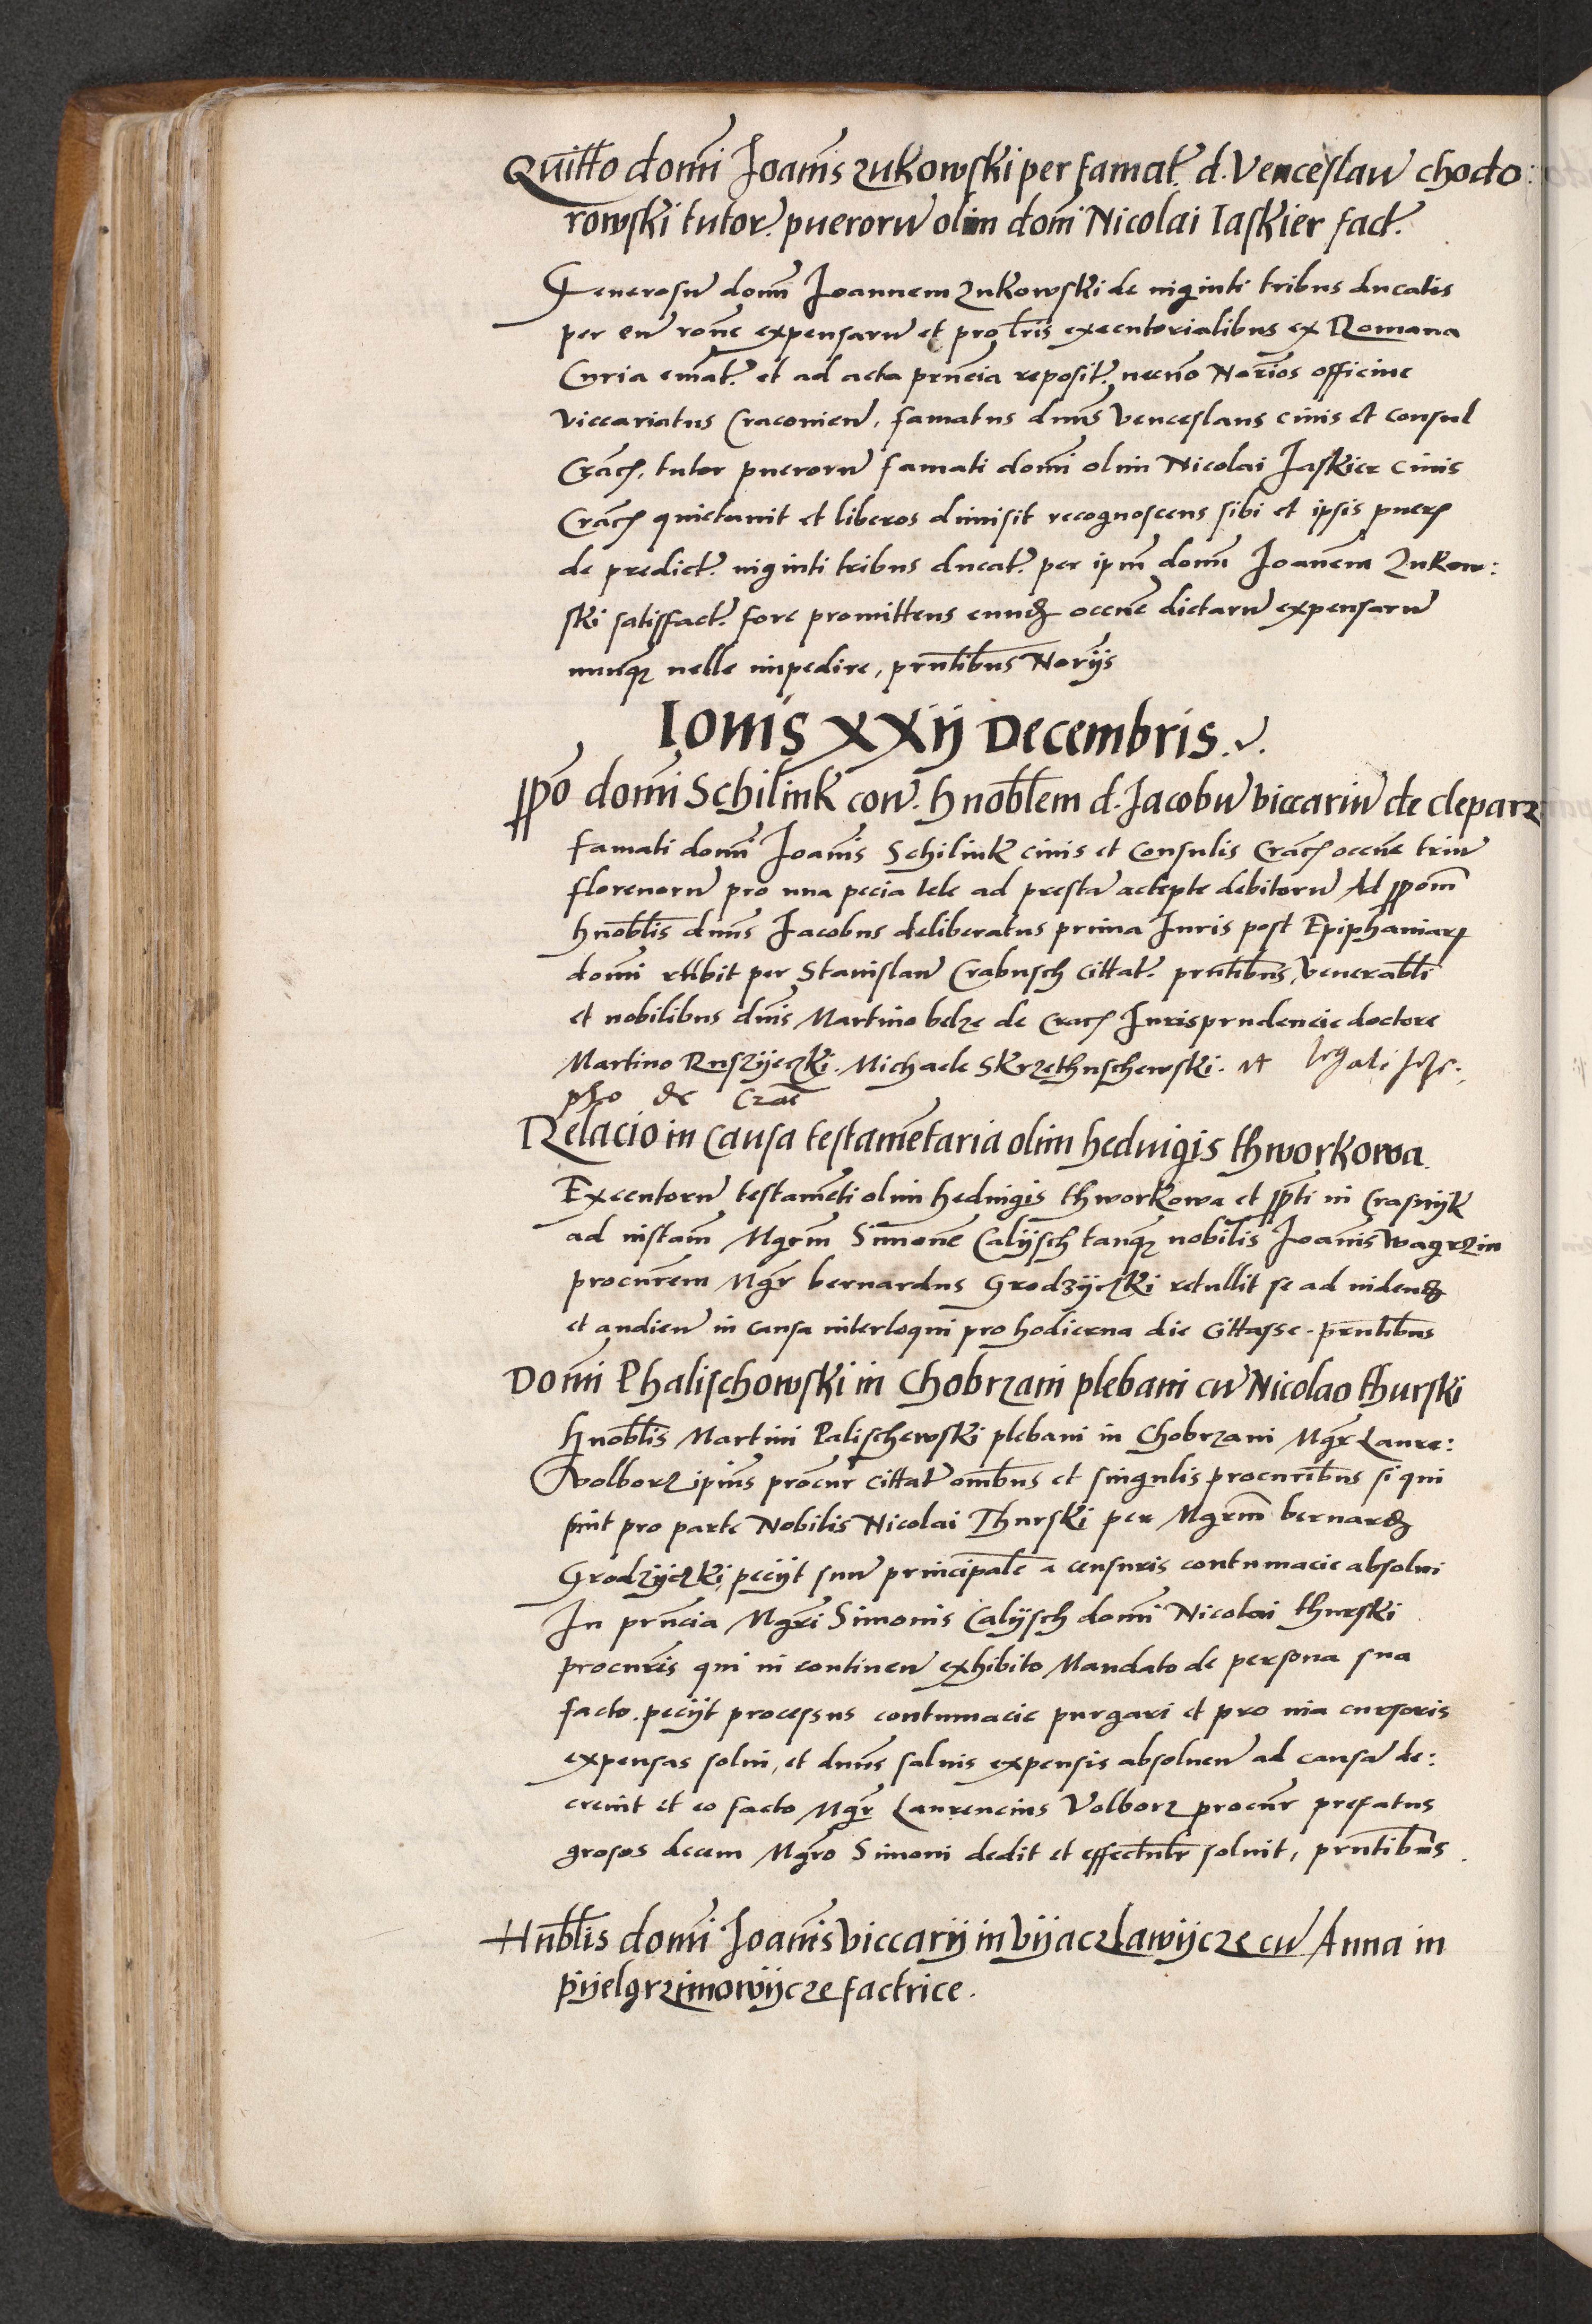 Quitto domi Joanis Zukowski per famat. d. Venceslau chodo:
rowski tutor. pueroru olim domi Nicolai Iaskier fact.
Generosu domi Joannem Zukowski de viginti tribus ducatis
per eu rone expensaru et pro lris executorialibus ex Romana
Curia emat. et ad acta prncia reposit. necno Norios officine
viccariatus Cracovien, famatus dnus Venceslaus civis et consul
Crac, tutor pueroru famati domi olim Nicolai Jaskier civis
Crac quietavit et liberos dimisit recognoscens sibi et ipsis puer
de predict. viginti tribus ducat. per ipm domi Joanem Zukow:
ski satisfact. fore promittens eundem occne dictaru expensaru
nunq velle impedire, prntibus Norijs
Iovis XXij Decembris.
ppo domi Schilink con. hnoblem d. Jacobu viccariu de clepar
famati domi Joanis Schilink civis et consulis Crac occne triu
florenoru pro una pecia tele ad presta accepte debitoru Ad ppom
hnoblis dnus Jacobus deliberatus prima Juris post Epiphaniar
domi rndbit per Stanislau Crabusch cittat. prntibus, venerabli
et nobilibus dnis Martino belze de Crac Jurisprudencie doctore
Martino Ruszijeczki. Michaele Skrzethuschewski. et
de Crac
Relacio in causa testamentaria olim hedvigis thworkowa.
Executoru testamenti olim hedvigis thworkowa et ppti in Crasnijk
ad instam Mgrm Simone Calijsch tanq nobilis Joanis Wagrzin
procurem Mgr bernardus Grodzijczki retullit se ad videnđ
et audien in causa interloqui pro hodierna die Cittasse. prntibus
Domi Phalischowski in Chobrzani plebani cu Nicolao thurski
Hnoblis Martini Palischewski plebani in Chobrzani Mgr Laure:
Wolborz ipius procur cittat ombus et singulis procuribus si qui
sint pro parte Nobilis Nicolai Thurski per Mgrm bernarđ
Grodzijczki, pecijt suu principale a censuris contumacie absolvi
In prncia Mgri Simonis Calijsch domi Nicolai thurski
procuris qui in continen exhibito Mandato de persona sua
facto. pecijt processus contumacie purgari et pro via cursoris
expensas solvi, et dnus salvis expensis absolven ad causa de:
crevit et eo facto Mgr Laurencius Volborz procur prefatus
grosos decem Mgro Simoni dedit et effectulr solvit, prntibus
Hnblis domi Joanis viccarij in Vijaczlawijcze cu Anna in
pijelgrzimowijcze factrice.